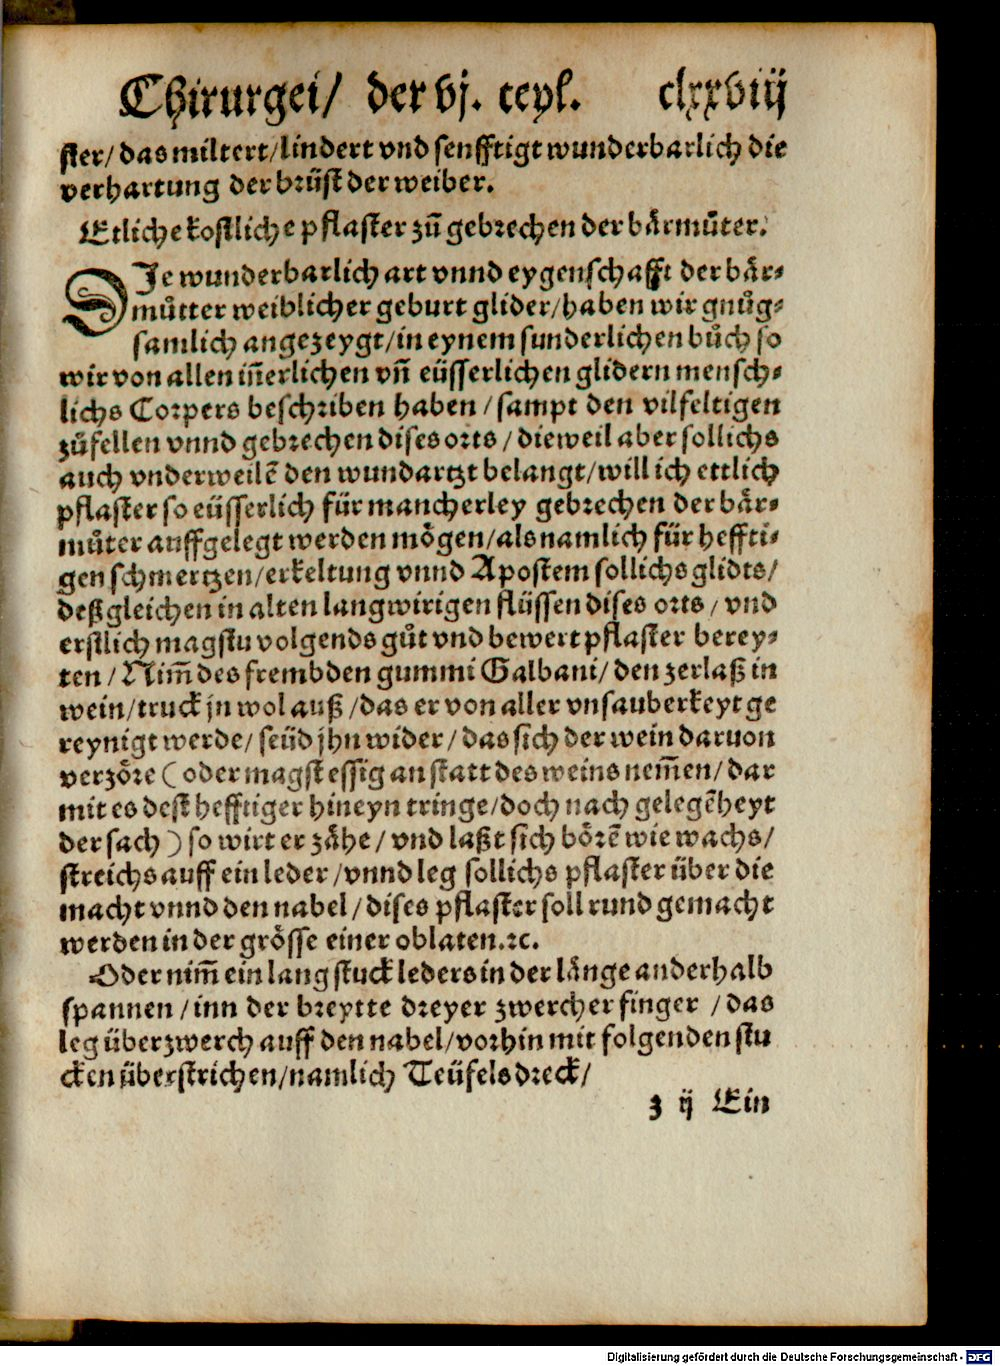 Chirurgei/ der vj. teyl. clxxviij
ster/ das miltert/ lindert vnd senfftigt wunderbarlich die
verhartung der brüst der weiber.
Etliche kostliche pflaster zů gebrechen der bärmůter.
DJe wunderbarlich art vnnd eygenschafft der bär-
můtter weiblicher geburt glider/ haben wir gnůg-
samlich angezeygt/ in eynem sunderlichen bůch so
wir von allen iñerlichen vñ eüsserlichen glidern mensch-
lichs Corpers beschriben haben/ sampt den vilfeltigen
zůfellen vnnd gebrechen dises orts/ dieweil aber sollichs
auch vnderweilē den wundartzt belangt/ will ich ettlich
pflaster so eüsserlich für mancherley gebrechen der bär-
můter auffgelegt werden mögen/ als namlich für heffti-
gen schmertzen/ erkeltung vnnd Apostem sollichs glidts/
deßgleichen in alten langwirigen flüssen dises orts/ vnd
erstlich magstu volgends gůt vnd bewert pflaster berey-
ten/ Nim̃ des frembden gummi Galbani/ den zerlaß in
wein/ truck jn wol auß/ das er von aller vnsauberkeyt ge
reynigt werde/ seüd jhn wider/ das sich der wein daruon
verzöre (oder magst essig an statt des weins nem̃en/ dar
mit es dest hefftiger hineyn tringe/ doch nach gelegēheyt
der sach) so wirt er zähe/ vnd laßt sich börē wie wachs/
streichs auff ein leder/ vnnd leg sollichs pflaster über die
macht vnnd den nabel/ dises pflaster soll rund gemacht
werden in der grösse einer oblaten.ꝛc.
Oder nim̃ ein lang stuck leders in der länge anderhalb
spannen/ inn der breytte dreyer zwercher finger/ das
leg überzwerch auff den nabel/ vorhin mit folgenden stu
cken überstrichen/ namlich Teüfels dreck/
z ij Ein
Digitalisierung gefördert durch die Deutsche Forschungsgemeinschaft - DFG